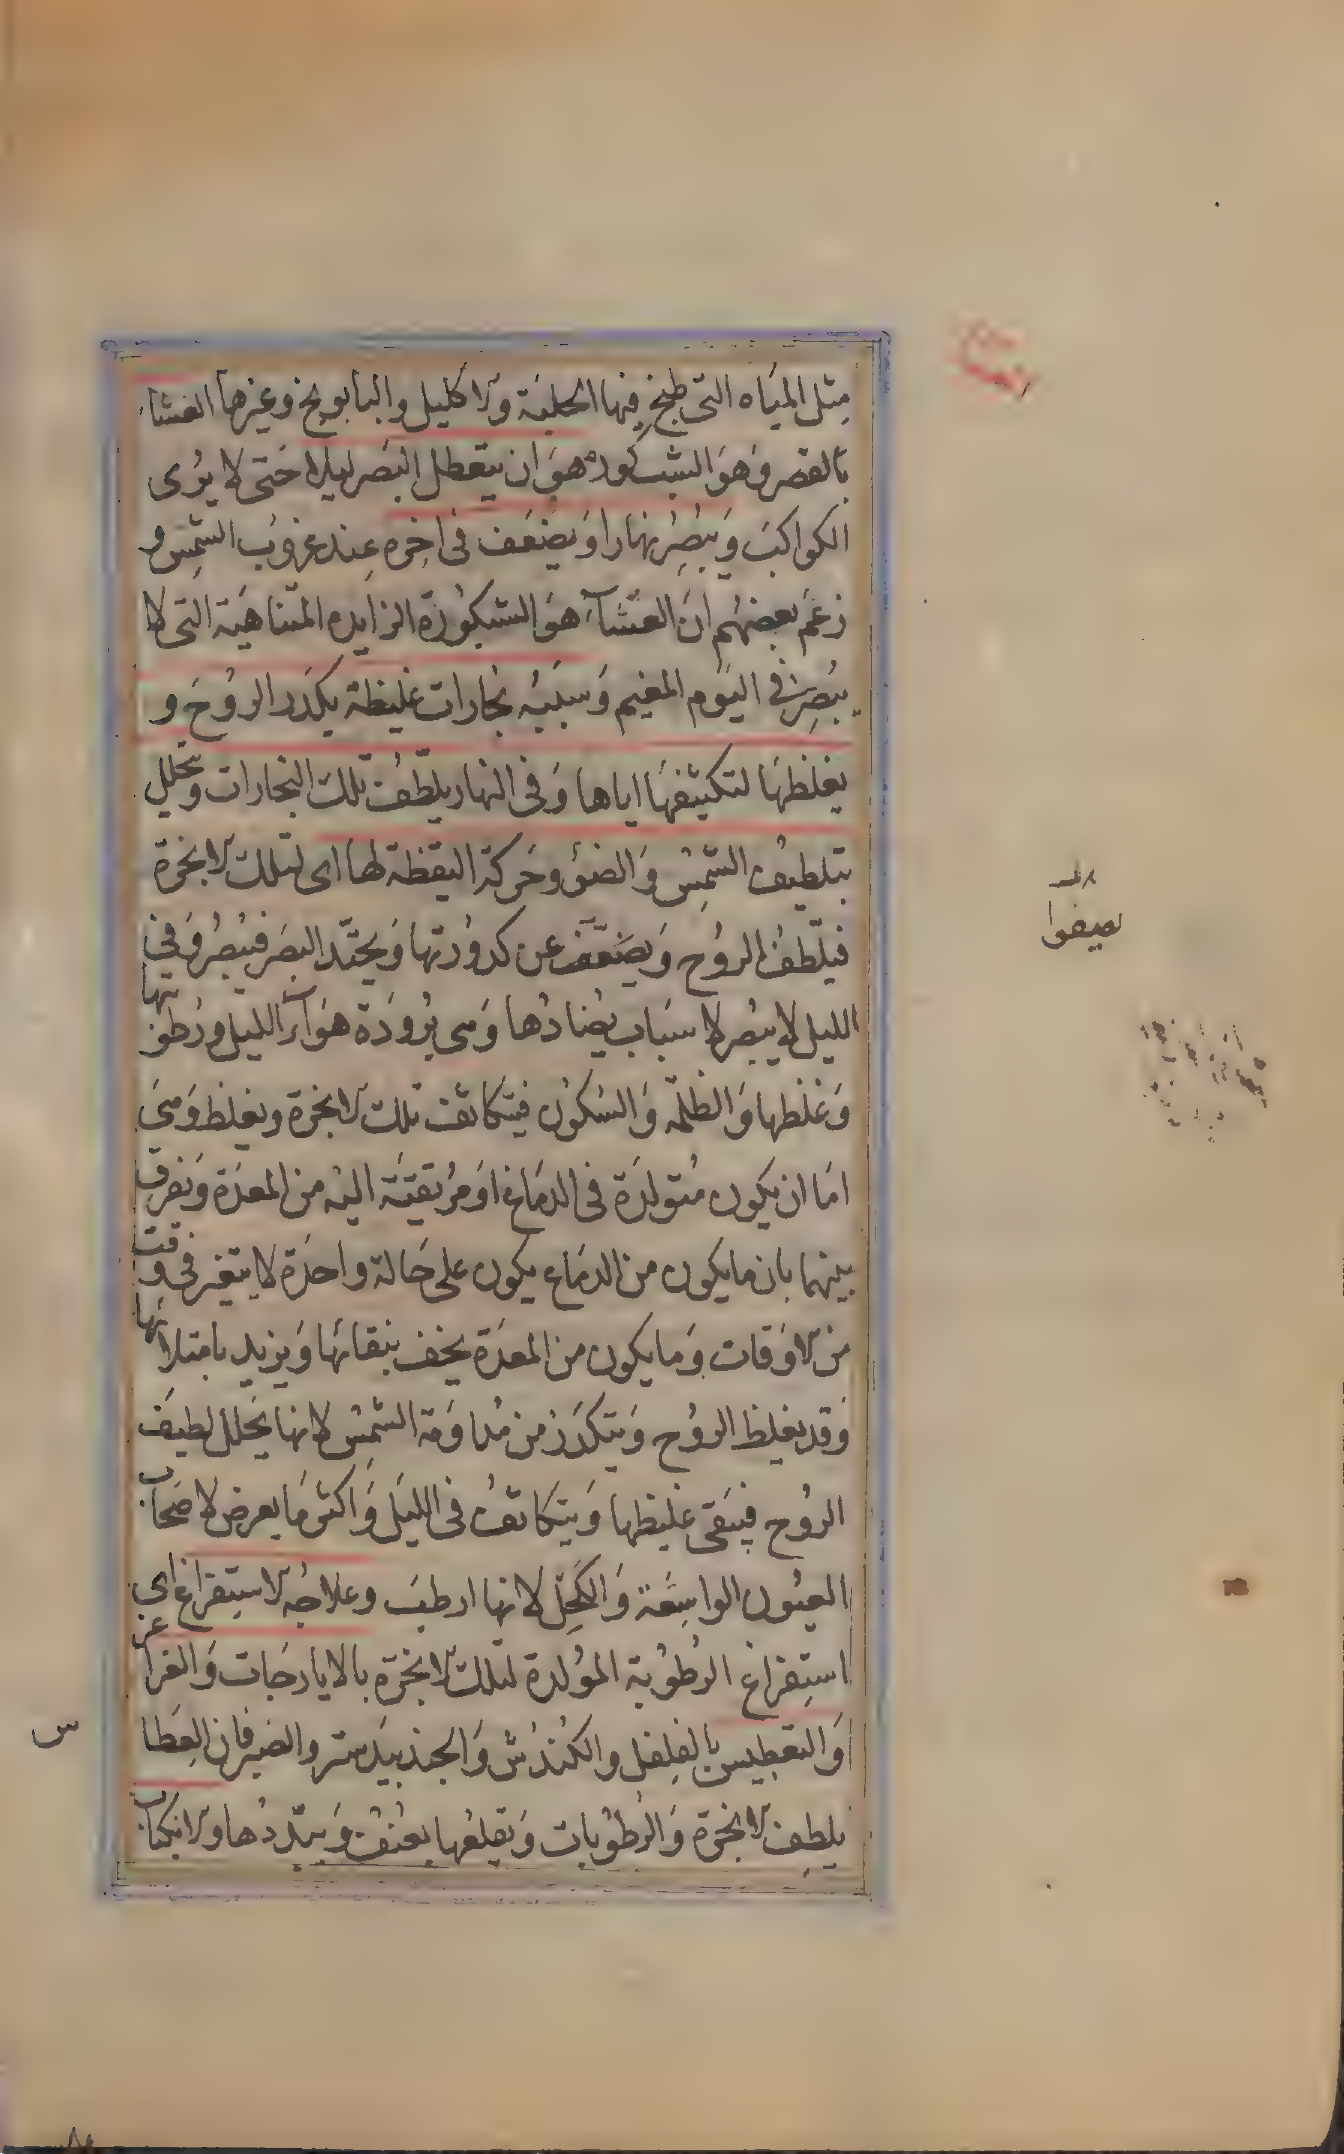 مثل المياه التى طبخ فيها الحلبة والاكليل والبابونج وغيرها العشا
بالقصر وهو الشبكوره هو ان يتعطل البصر ليلا حتى لا يرى
الكواكب ويبصر نهارا ويضعف فى اخره عند غروب الشمس و
زعم بعضهم ان العشآء هو الشبكورة الزايده المتناهية التى لا
يبصر فى اليوم المغيم وسببه بخارات غليظة يكدر الروح و
يغلظها لتكثيفها اياها وفى النهار يلطف تلك البخارات ويتحلل
بتلطيف الشمس والضوء وحركة اليقظة لها اى لتلك الابخرة
فيلطف الروح ويضعف عن كدورتها ويحتد البصر فيبصر وفى
الليل لا يبصر لاسباب يضادها وهى برودة هوآء الليل ورطوبتها
وغلظها والظلمة والسكون فيتكاثف تلك الابخرة ويغلظ وهى
اما ان يكون متولدة فى الدماغ او مرتقية اليه من المعدة ويفرق
بينهما بان ما يكون من الدماغ يكون على حالة واحدة لا يتغير فى وقت
من الاوقات وما يكون من المعدة يخف بنقائها ويزيد بامتلائها
وقد يغلظ الروح ويتكدر من مداومة الشمس لانها يحلل لطيف
الروح فيبقى غليظها ويتكاثف فى الليل واكثر ما يعرض لاصحاب
العيون الواسعة والكحل لانها ارطب وعلاجه الاستفراغ اى
استفراغ الرطوبة المولدة لتلك الابخرة بالايارجات والغراغر
والتعطيس بالفلفل والكندش والجندبيدستر والصبر فان العطاس
يلطف الابخرة والرطوبات ويقلعها بعنف ويبددها والانكباب
يصفوا